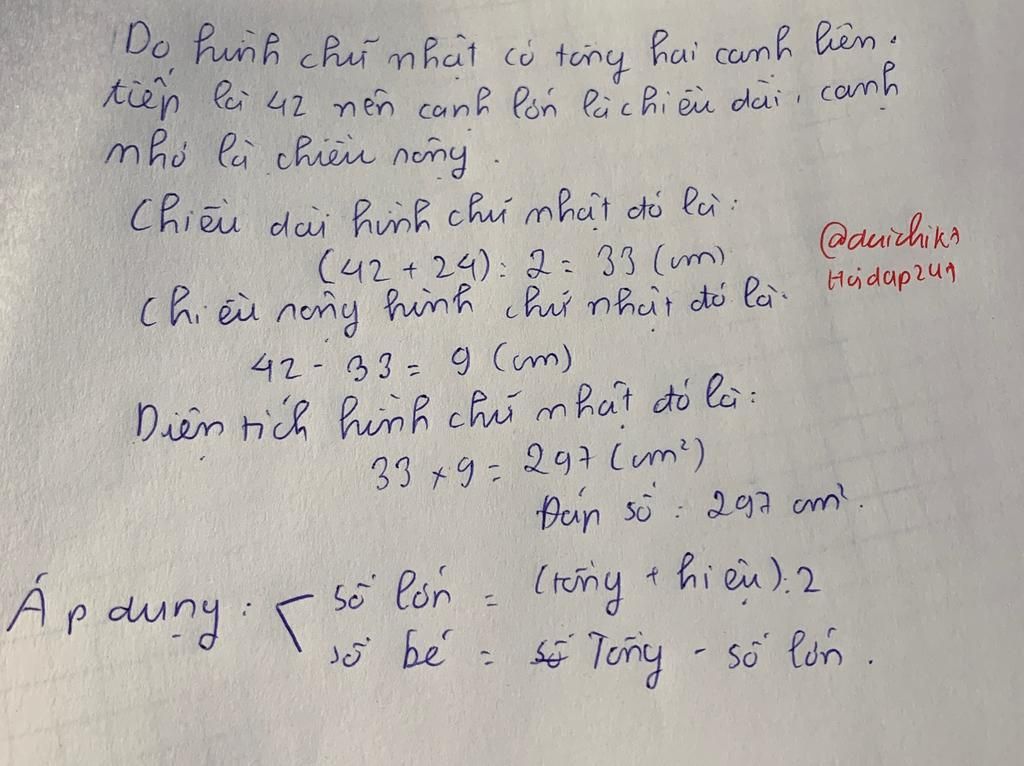 Do hình chữ nhật có tổng hai cạnh liên
tiếp là 42 nên cạnh lớn là chiều dài, cạnh
nhỏ là chiều rộng.
Chiều dài hình chữ nhật đó là:
(42 + 24) : 2 = 33 (cm)
Chiều rộng hình chữ nhật đó là:
42 - 33 = 9 (cm)
Diện tích hình chữ nhật đó là:
33 × 9 = 297 (cm²)
Đáp số : 297 cm².
@auichiks
Hoidap247
Áp dụng : số lớn = (tổng + hiệu) : 2
số bé = số Tổng - số lớn.